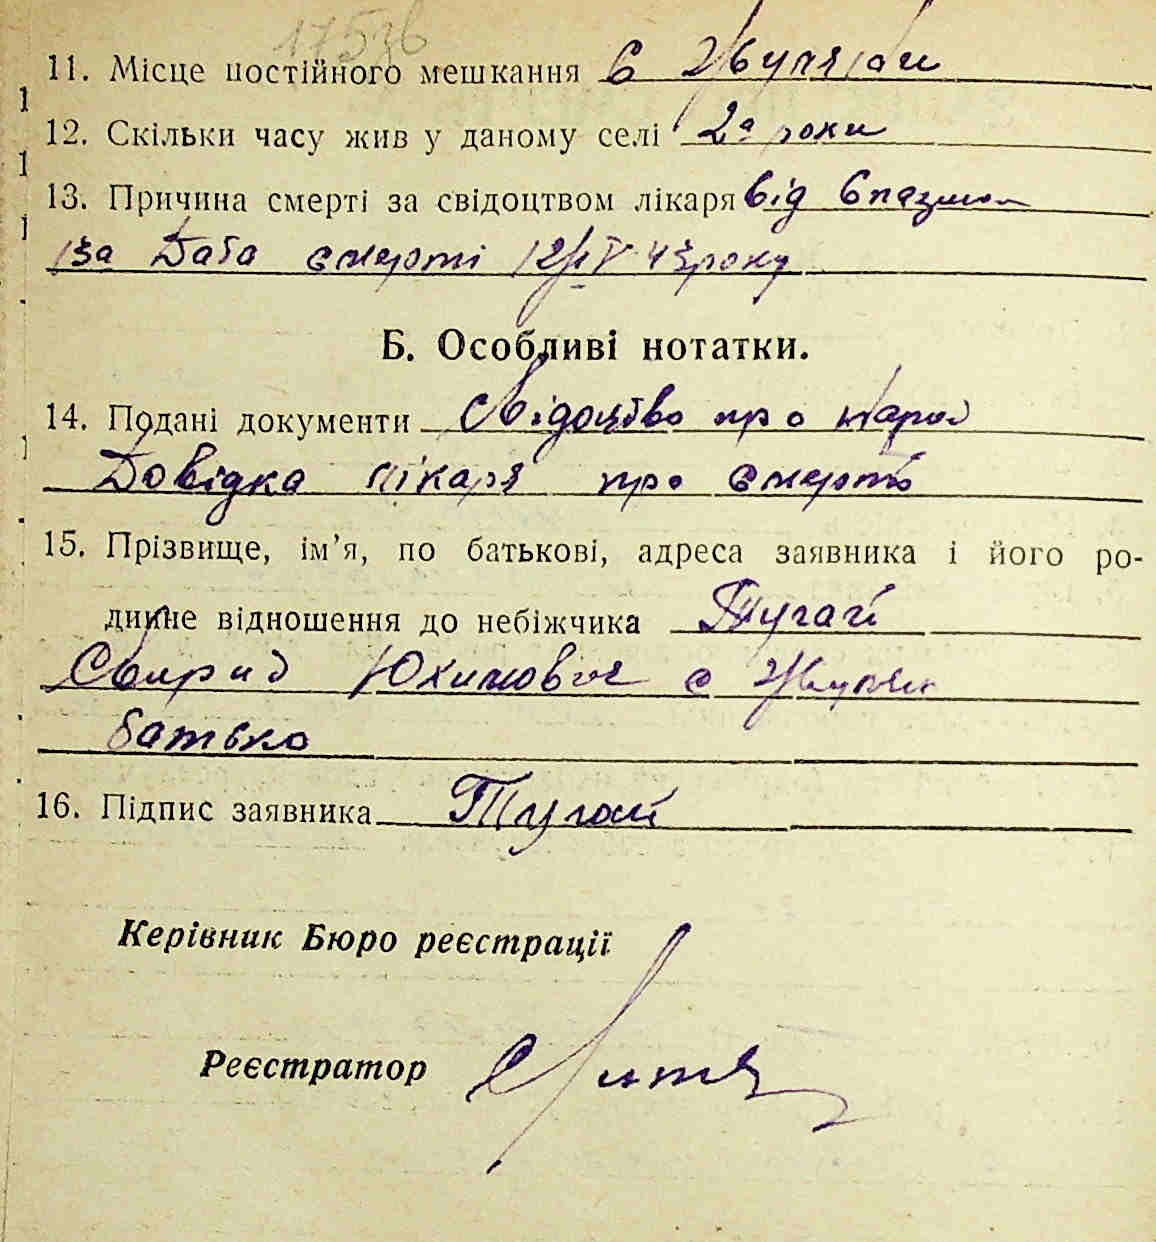 17536
11. Місце постійного мешкання с
12. Скільки часу жив у даному селі 2а роки
13. Причина смерті за свідоцтвом лікаря від Спазми
13а Дата смерті 12/IV 43 року
Б. Особливі нотатки.
14. Подані документи Свідоцтво про народ
Довідка лікаря про смерть
15. Прізвище, ім’я, по батькові, адреса заявника і його ро-
динне відношення до небіжчика Тугай
Свирид Юхимович с
батько
16. Підпис заявника Тугай
Керівник Бюро реєстрації
Реєстратор